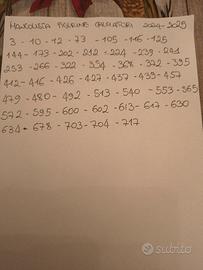 MANCOLISTA FIGURINE CALCIATORI 2024-2025
3 - 10 - 12 - 73 - 105 - 116 - 125
144 - 173 - 202 - 212 - 224 - 239 - 241
253 - 266 - 322 - 354 - 368 - 372 - 395
412 - 416 - 426 - 427 - 437 - 439 - 457
479 - 480 - 492 - 513 - 540 - 553 - 565
572 - 595 - 600 - 602 - 613 - 617 - 630
634 - 678 - 703 - 704 - 717
subito